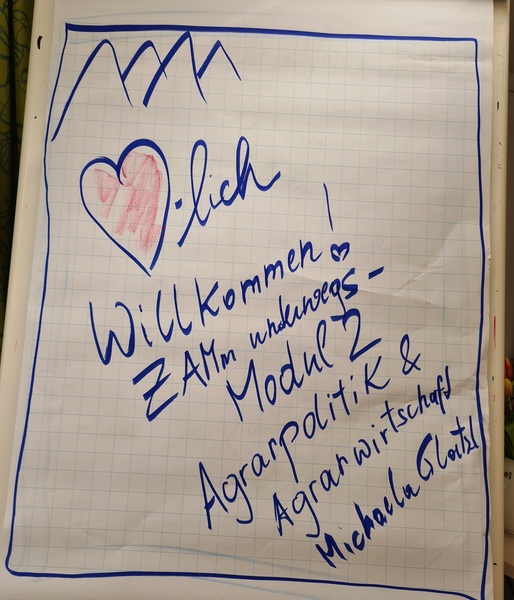 -lich
Willkommen!
ZAMm unterwegs -
Modul 2
Agrarpolitik &
Agrarwirtschaft
Michaela Glatzl